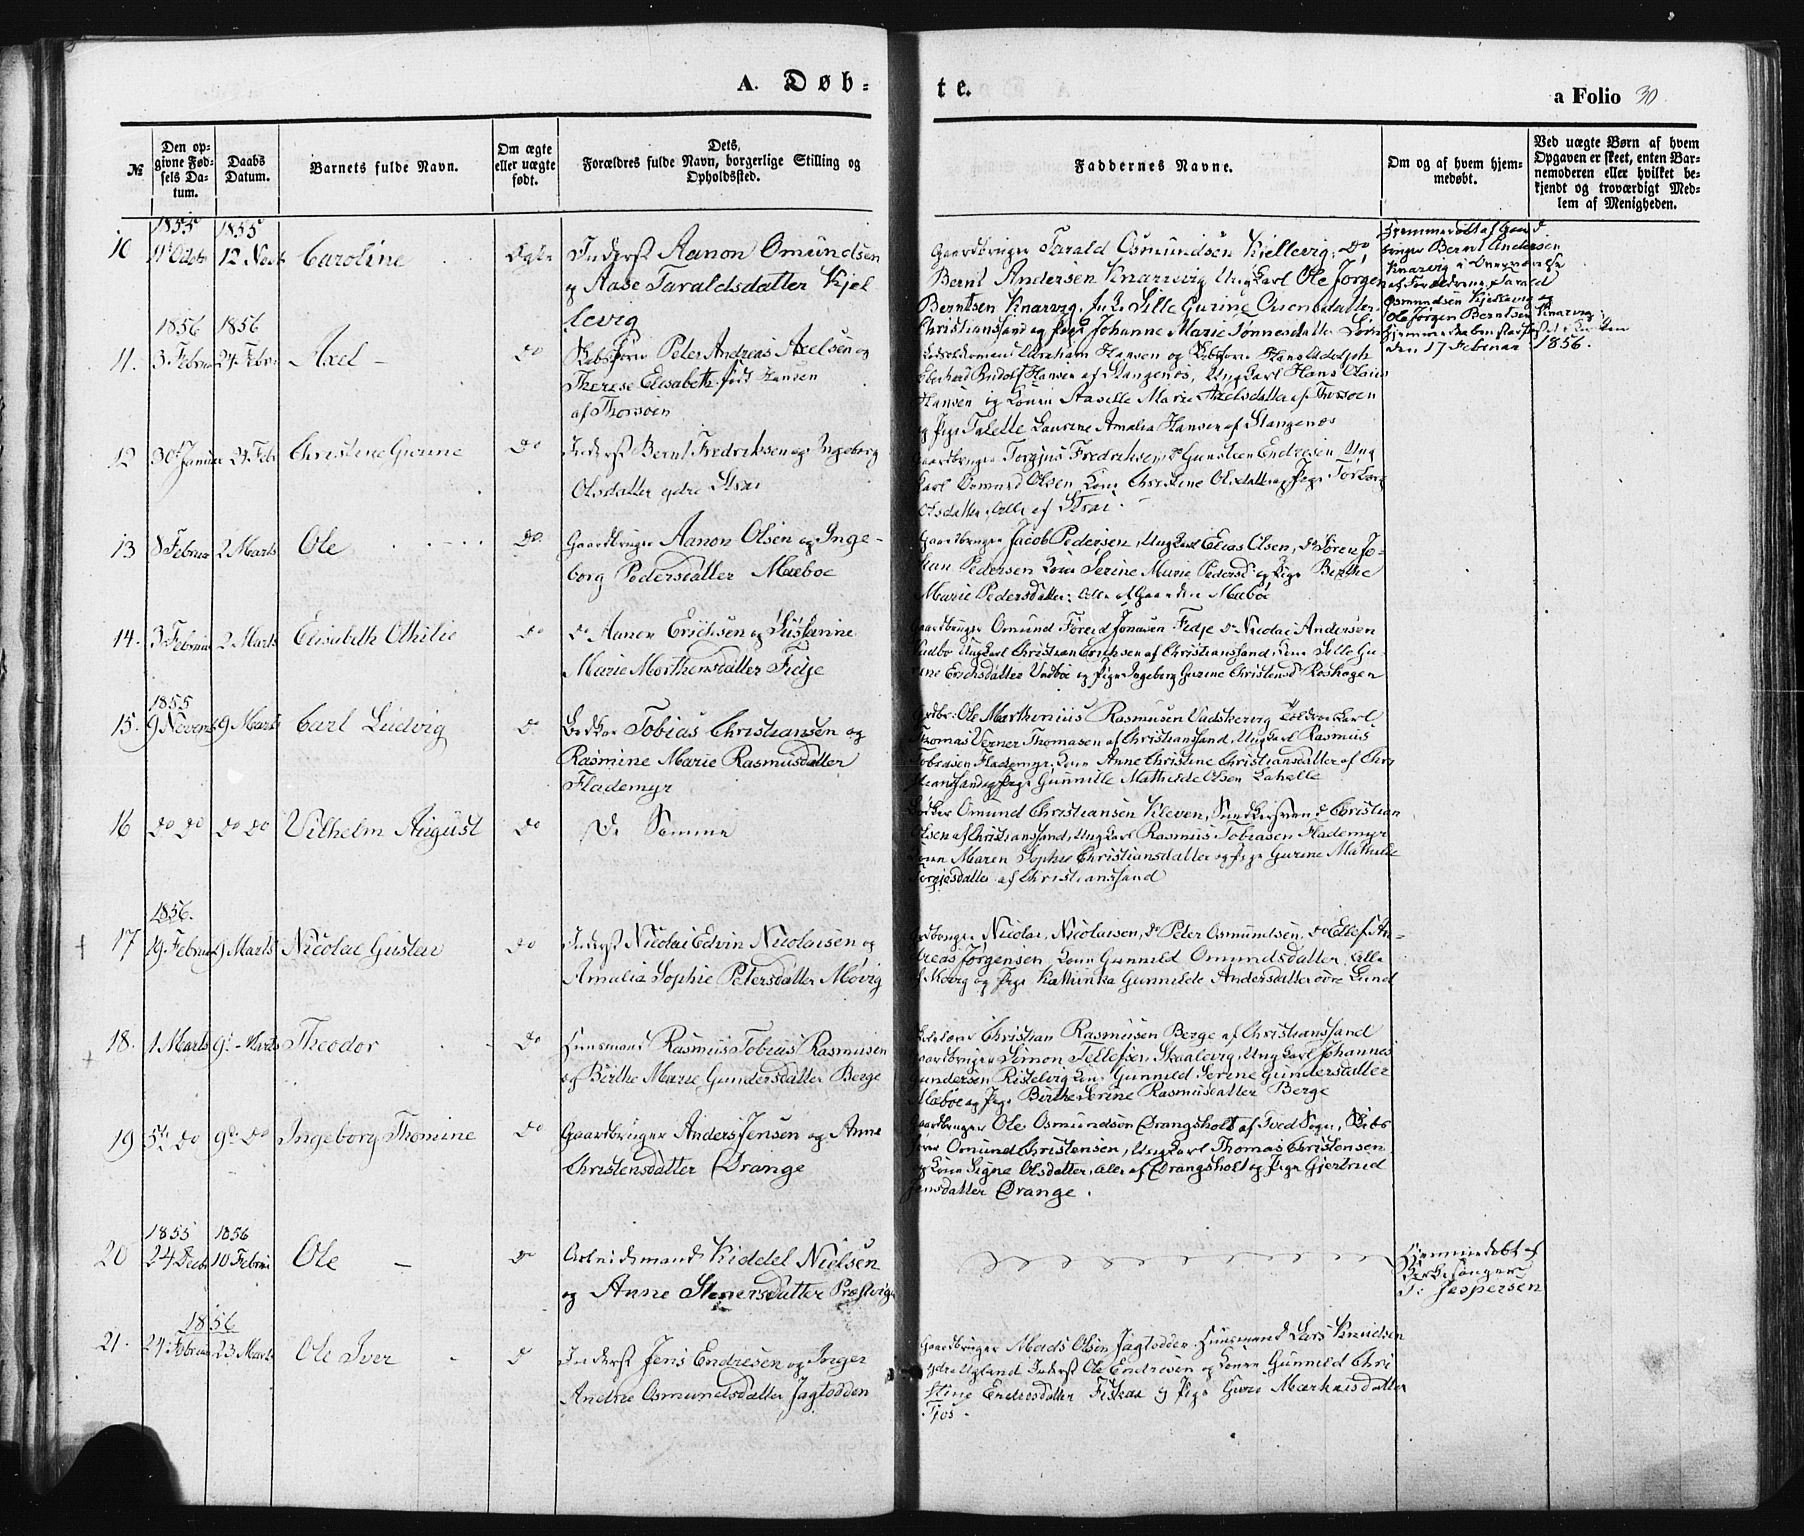 A. Døb-
te.
a Folio 30
№
Den op-
givne Fød-
sels Da-
tum.
Daabs
Datum.
Barnets fulde Navn.
Om ægte
eller uægte
født.
Dets
Forældres fulde Navn, borgerlige Stilling og
Opholdssted.
Faddernes Navne.
Om og af hvem hjem-
medøbt.
Ved uægte Børn af hvem
Opgaven er skeet, enten Bar-
nemoderen eller hvilket be-
kjendt og troværdigt Med-
lem af Menigheden.
1855 1855
10 12 Caroline Ægte Inderst Aanon Omundsen
og Aase Taraldsdatter Kjel
levig
Gaardbruger Tarald Osmundsen Kjellevig, Do
Bernt Andersen Knarrevig Ungkarl Ole Jørgen
Berntsen Knarvig,
Christianssand og Pige Johanne Marie Tønnesdatter
Hjemmedøbt af Gaard
bruger Bernt Andersen
Knarvig i Overværelse
af Forældrene, Tarald
Osmundsen Kjellevig og
Ole Jørgen Berntsen Knarvig
den 17 Februar 1856.
1856 1856
11. 3 Februar 24 Febr. Axel - Do Peter Andreas Axelsen og
Therese Elisabeth født Hansen
af Thorsøen
Abraham Hansen og Hans Adolph
Eberhard Rudolf Hansen af Stangenes, Ungkarl Hans Olaus
Hansen og Konen Marie Axelsdatter af Thorsøen
og Pige Talette Laurine Amalia Hansen af Stangenes
12 30te Januar 24 Feb Christine Gurine Do Inderst Bernt Fredriksen og Ingeborg
Olsdatter ydre Strai
Gaardbruger Torgjus Fredriksen, Do Gunsten Endresen Ung
karl Osmund Olsen, Kone Christine Olsdatter og Pige
Olsdatter, Alle af Strai.
13 8 Februar 2 Marts Ole Do Gaardbruger Aanon Olsen og Inge-
borg Pedersdatter Mæboe
Gaardbruger Jacob Pedersen, Ungkarl Elias Olsen, Do Søren Jo-
han Pedersen Kone Serine Marie Pedersd og Pige Birthe
Marie Pedersdatter: Alle af Gaarden Mæbøe
14. 3 Februar 2 Marts Elisabeth Othilie Do Do Aanon Erichsen og Susanne
Marie Morthensdatter Fidje
Gaardbruger Omund Jonasen Fidje Do Nicolai Andersen
Ungkarl Christian Erichsen af Christianssand, Kone Sille Gu-
rine Erichsdatter og Pige Ingeborg Gurine Christensd Roshagen
1855
15. 9 Novemb 9 Marts Carl Ludvig Do Tobias Christiansen og
Rasmine Marie Rasmusdatter
Flademyr
Gdbr. Ole Marthinius Rasmusen
Thomas Verner Thomasen af Christianssand, Ungkarl Rasmus
Tobiasen Flademyr, Kone Anne Christine Christiansdatter af Chri
stianssand og Pige Gunnille Mathilde Olsen
16 Do Do Do Do Vilhelm August Do De Samme
Omund Christiansen Kleven, Do Christian
Olsen af Christianssand, Ungkarl Rasmus Tobiasen Flademyr
Kone Maren Sophie Christiansdatter og Pige Gurine Mathilde
Torgjesdatter af Christianssand
1856.
17 19. Februar 9 Marts Nicolai Gustav Do Inderst Nicolai Edvin Nicolaisen og
Amalia Sophie Petersdatter Møvig
Gdbruger Nicolai Nicolaisen, Do Peter Osmundsen, Do Ellef An-
dreas Jørgensen, Kone Gunnild Omundsdatter, Alle
af Møvig og Pige Kathinka Gunnilde Andersdatter øvre Lund
18. 1 Marts 9de Marts Theodor Do Huusmand Rasmus Tobias Rasmusen
og Birthe Marie Gundersdatter Berge
Christian Rasmusen Berge af Christianssand
Gaardbruger Simon Tellefsen Skaalevig, Ungkarl Johannes
Gundersen Kone Gunnild Serine Gundersdatter
Mæbøe og Pige Birthe Serine Rasmusdatter Berge
19 5te Do 9de Do Ingeborg Thomine Do Gaardbruger Anders Jensen og Anne
Christensdatter Drange
Gaardbruger Ole Osmundsen Drangsholt af Tved Sogn,
Omund Christensen, Ungkarl Thomas Christensen
og Kone Signe Olsdatter, alle af Drangsholt og Pige Gjertrud
Jensdatter Drange.
1855 1856
20 24 Decbr 10 Februar Ole - Do Arbeidsmand Kiddel Nielsen
og Anne Stenersdatter Præstvig
Hjemmedøbt af
Kirkesanger
Jespersen
1856
21. 24. Februar 23 Marts Ole Iver Do Inderst Jens Endresen og Inger
Andrea Osmundsdatter Jagtodden
Gaardbruger Mads Olsen Jagtodden, Huusmand Lars Knudsen
Inderst Ole Endresen og Konen Gunnild Chri
stine Endresdatter Fiskaa og Pige Guro
Tjos.